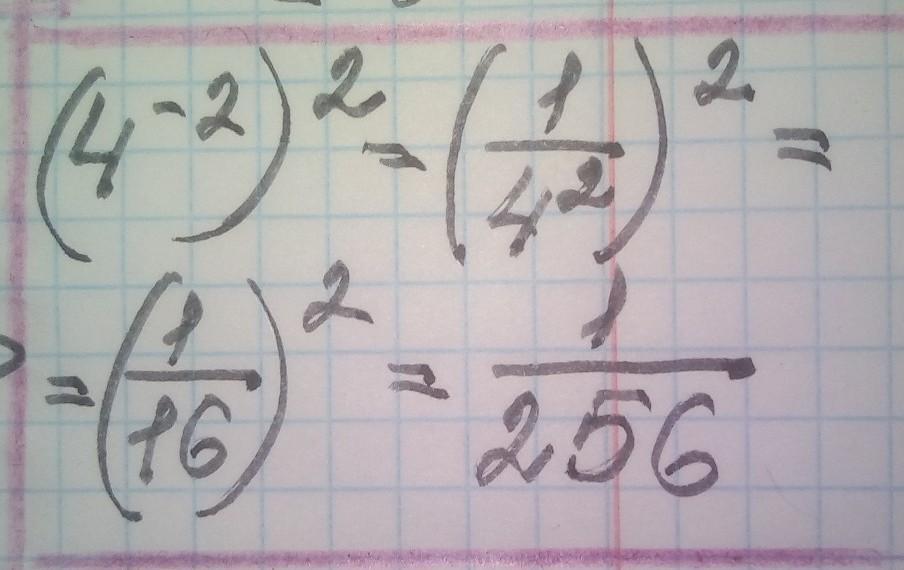 (4⁻²)² = (1/4²)² =
= (1/16)² = 1/256